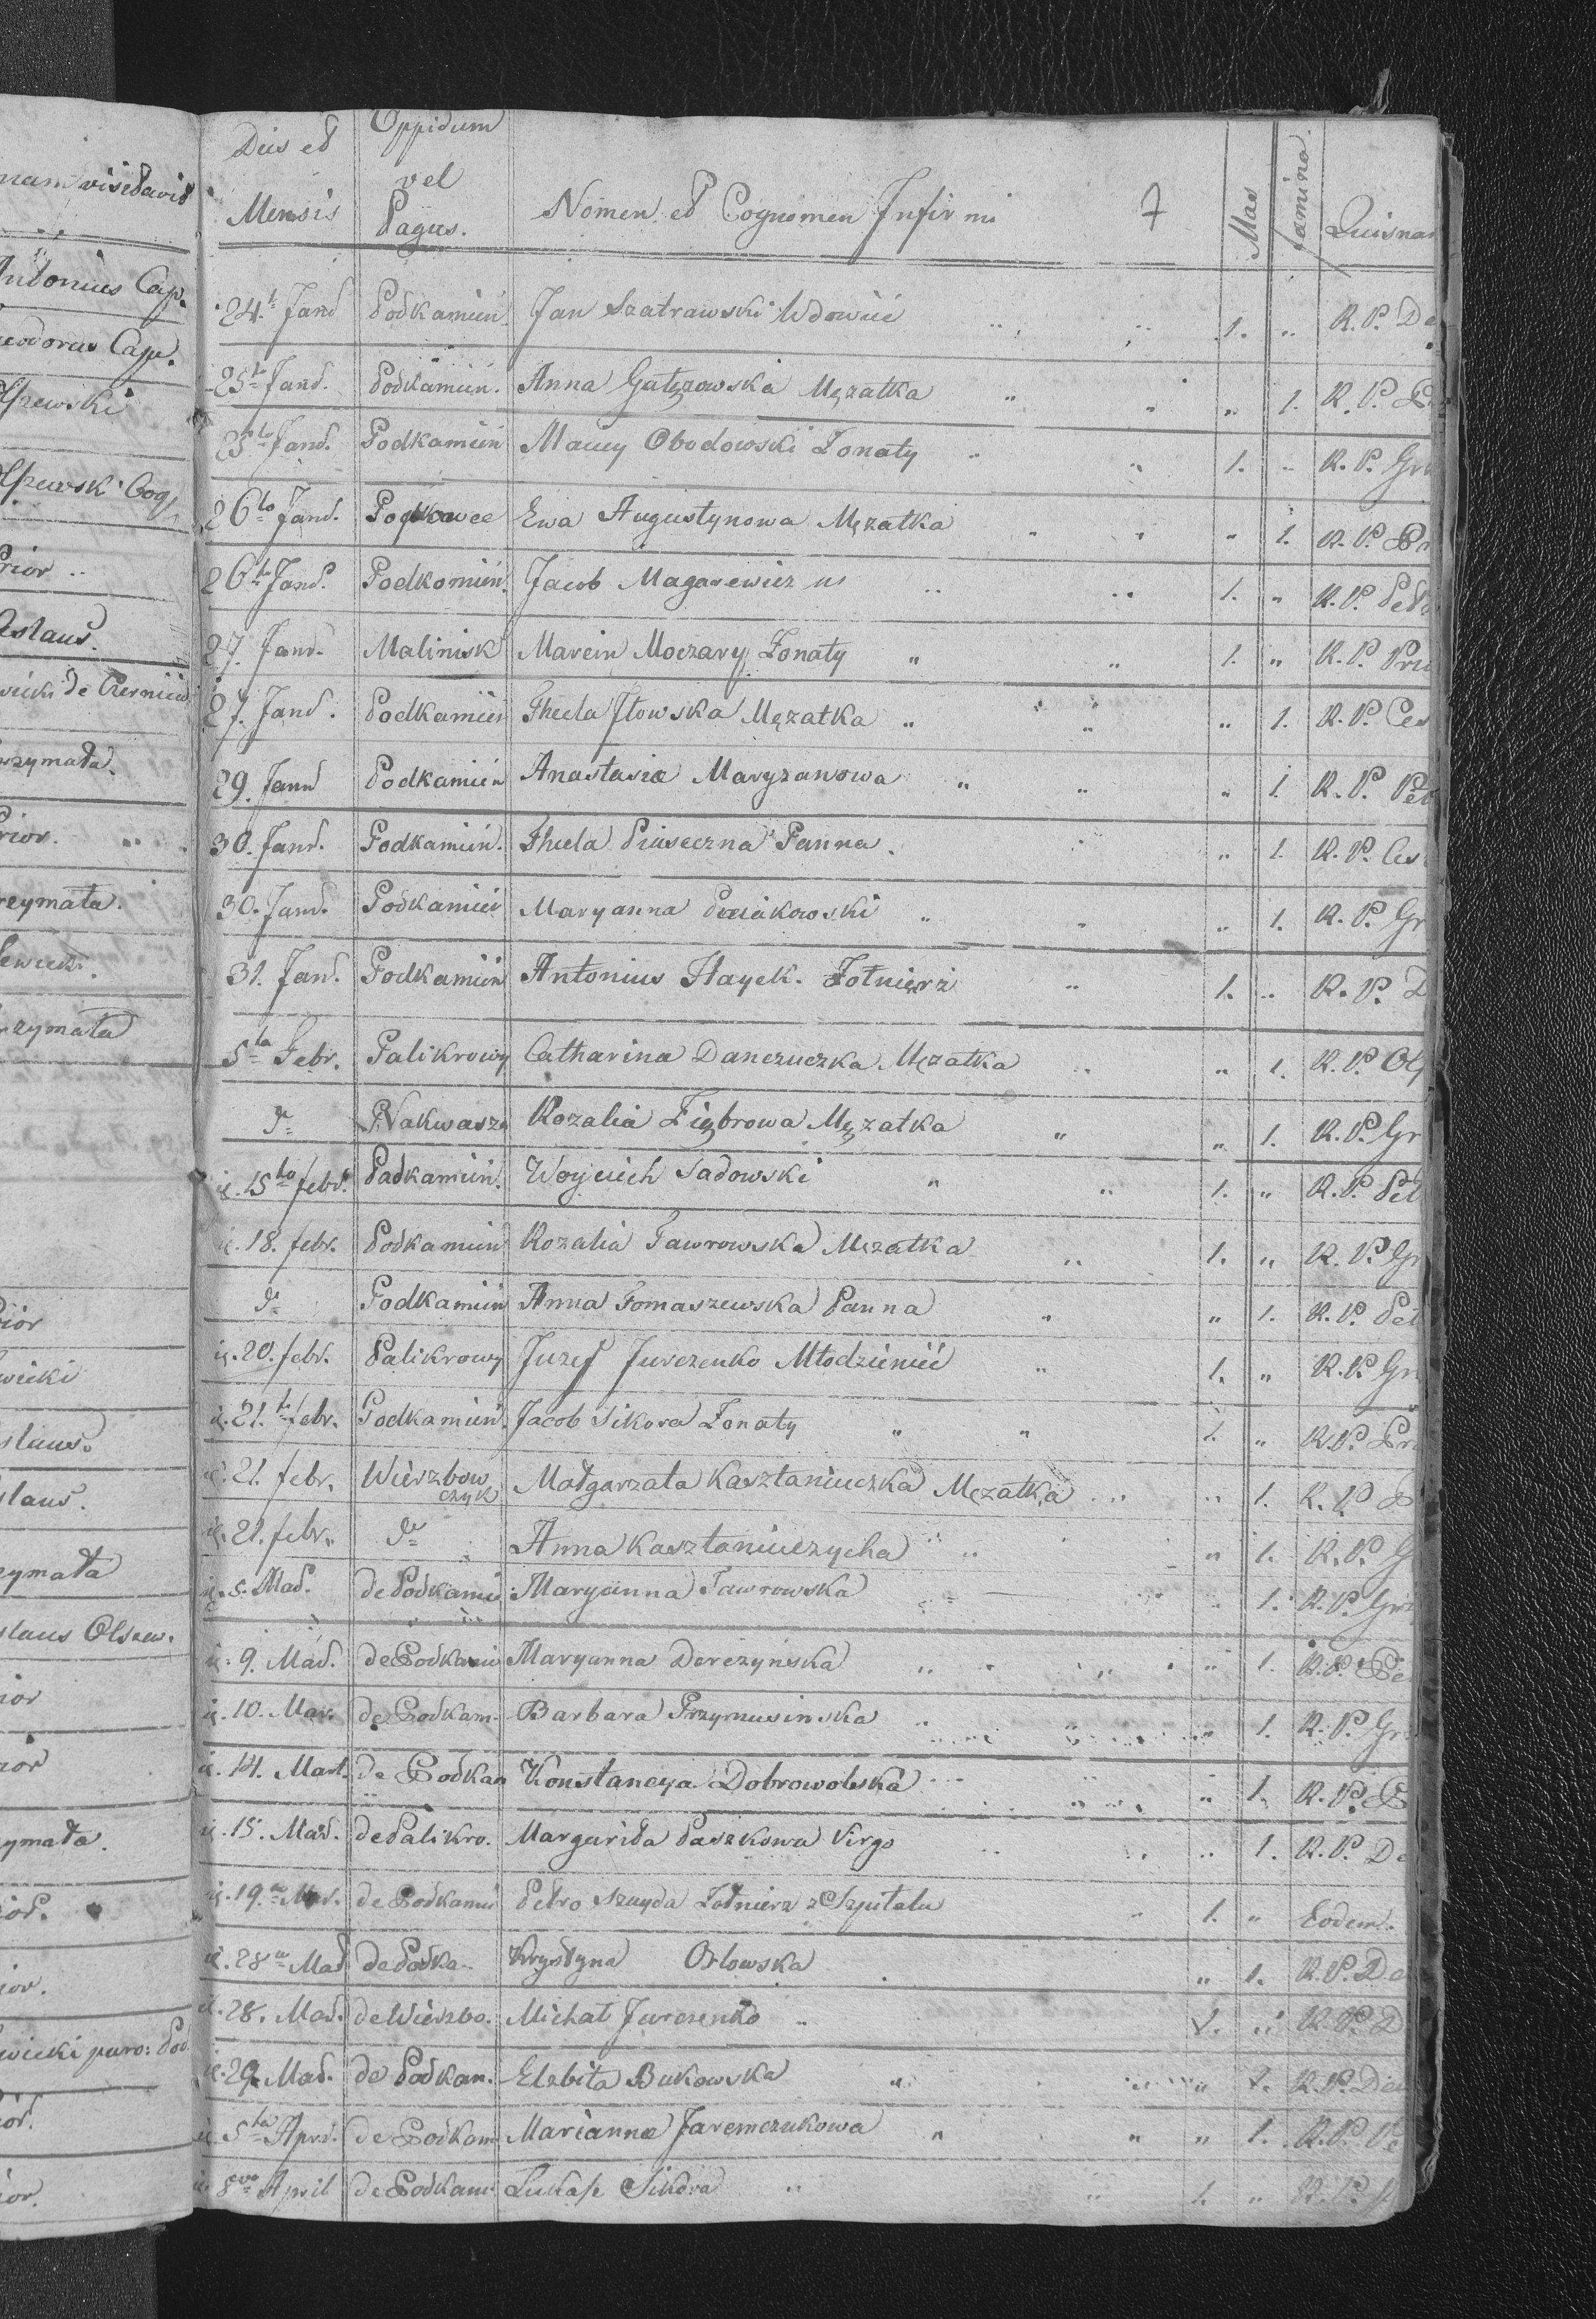 nam visitavit
Antonius Cap.
Teodorus Cap.
Prior ..
wicki de Czerniów
rzymała.
Prior.
rzymała
Prior
wicki
zymała
slaus Olszew.
ymała.
wicki paro: Pod
Dies et Mensis | Oppidum vel Pagus. | Nomen et Cognomen Infirmi 7 | Mas | famina. | Quisnam
24. Janu | Podkamień | Jan Szatrawski Wdowiec | 1. | „ | R. P. De
25. Janu. | Podkamień. | Anna Gałęzowska Męzatka | „ | 1. | R. P.
25. Janu. | Podkamień | Maciey Obodowski Zonaty | 1. | „ | R. P. Grz
26to Janu. | | Ewa Augustynowa Męzatka | „ | 1. | R. P.
26. Janu. | Podkomień. | Jacob Magarewicz | 1. | „ | R. P. Pet
27. Janu. | Malinisk | Marcin Moczary Zonaty | 1. | „ | R. P. Pri
27. Janu. | Podkamień | Thecla Jłowska Męzatka „ | „ | 1. | R. P. Ces
29. Janu | Podkamień | Anastasia Maryzanowa „ | „ | 1. | R. P. Pet
30. Janu. | Podkamień. | Thecla Piaseczna Panna. | „ | 1. | R. P. Ces
30. Janu. | Podkamień | Maryanna | „ | 1. | R. P. Gr
31. Janu. | Podkamień | Antonius Hayek. Zołnierz | 1. | „ | R. P. D
5ta Febr. | Palikrowy | Catharina Danczuczka Męzatka | „ | 1. | R. P. Ol
do | Nakwasza | Rozalia Ziębrowa Męzatka | „ | 1. | R. P. Gr
d. 15to febr. | Padkamień. | Woyciech Sadowski | 1. | „ | R. P. Pet
d. 18. febr. | Podkamień | Rozalia Jawrowska Męzatka | 1. | „ | R. P. Gr
do | Podkamień | Anna Tomaszewska Panna | „ | 1. | R. P. Pet
d. 20. febr. | Palikrowy | Juzef Jurczenko Młodzieniec | 1. | „ | R. P. Gr
d. 21. febr. | Podkamień. | Jacob Sikora Zonaty | 1. | „ | R. P. Pri
d. 21. febr. | Wierzbowczyk | Małgorzata Kasztaniuczka Męzatka | „ | 1. | R. P.
d. 21. febr. | do | Anna Kasztaniuczycha | „ | 1. | R. P. G
d. 5. Mad. | de Podkamie | Maryanna Jawrowska | „ | 1. | R. P. Grz
d. 9. Mad. | de Podkamie | Maryanna Derezyńska | „ | 1. | R. P. Pe
d. 10. Mar. | de Podkam. | Barbara Przymusinska | „ | 1. | R. P. Gr
d. 14. Mart. | de Podkam | Konstancya Dobrowolska | „ | 1. | R. P.
d. 15. Mad. | de Palikro. | Margarida Paszkowa Virgo | „ | 1. | R. P. De
d. 19. Mad. | de Podkamie | Petro Szayda Zołnierz z Szpitalu | 1. | „ | Eodem.
d. 28a Mad | de Podka. | Krystyna Orlowska | „ | 1. | R. P. De
d. 28. Mad. | de Wierzbo. | Michał Jurczenko | 1. | „ | R. P. D
d. 29. Mad. | de Podkam. | Elzbita Bukowska | „ | 1. | R. P. De
d. 5ta Apri. | de Podkam | Marianna Jaremczukowa | „ | 1. | R. P. Pe
d. 8vo April | de Podkam | Lukasz Sikora | 1. | „ | R. P.